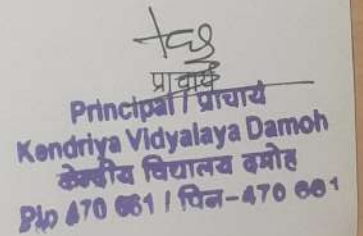 प्राचार्य
Principal / प्राचार्य
Kendriya Vidyalaya Damoh
केन्द्रीय विद्यालय दमोह
Pin 470 661 / पिन-470 661